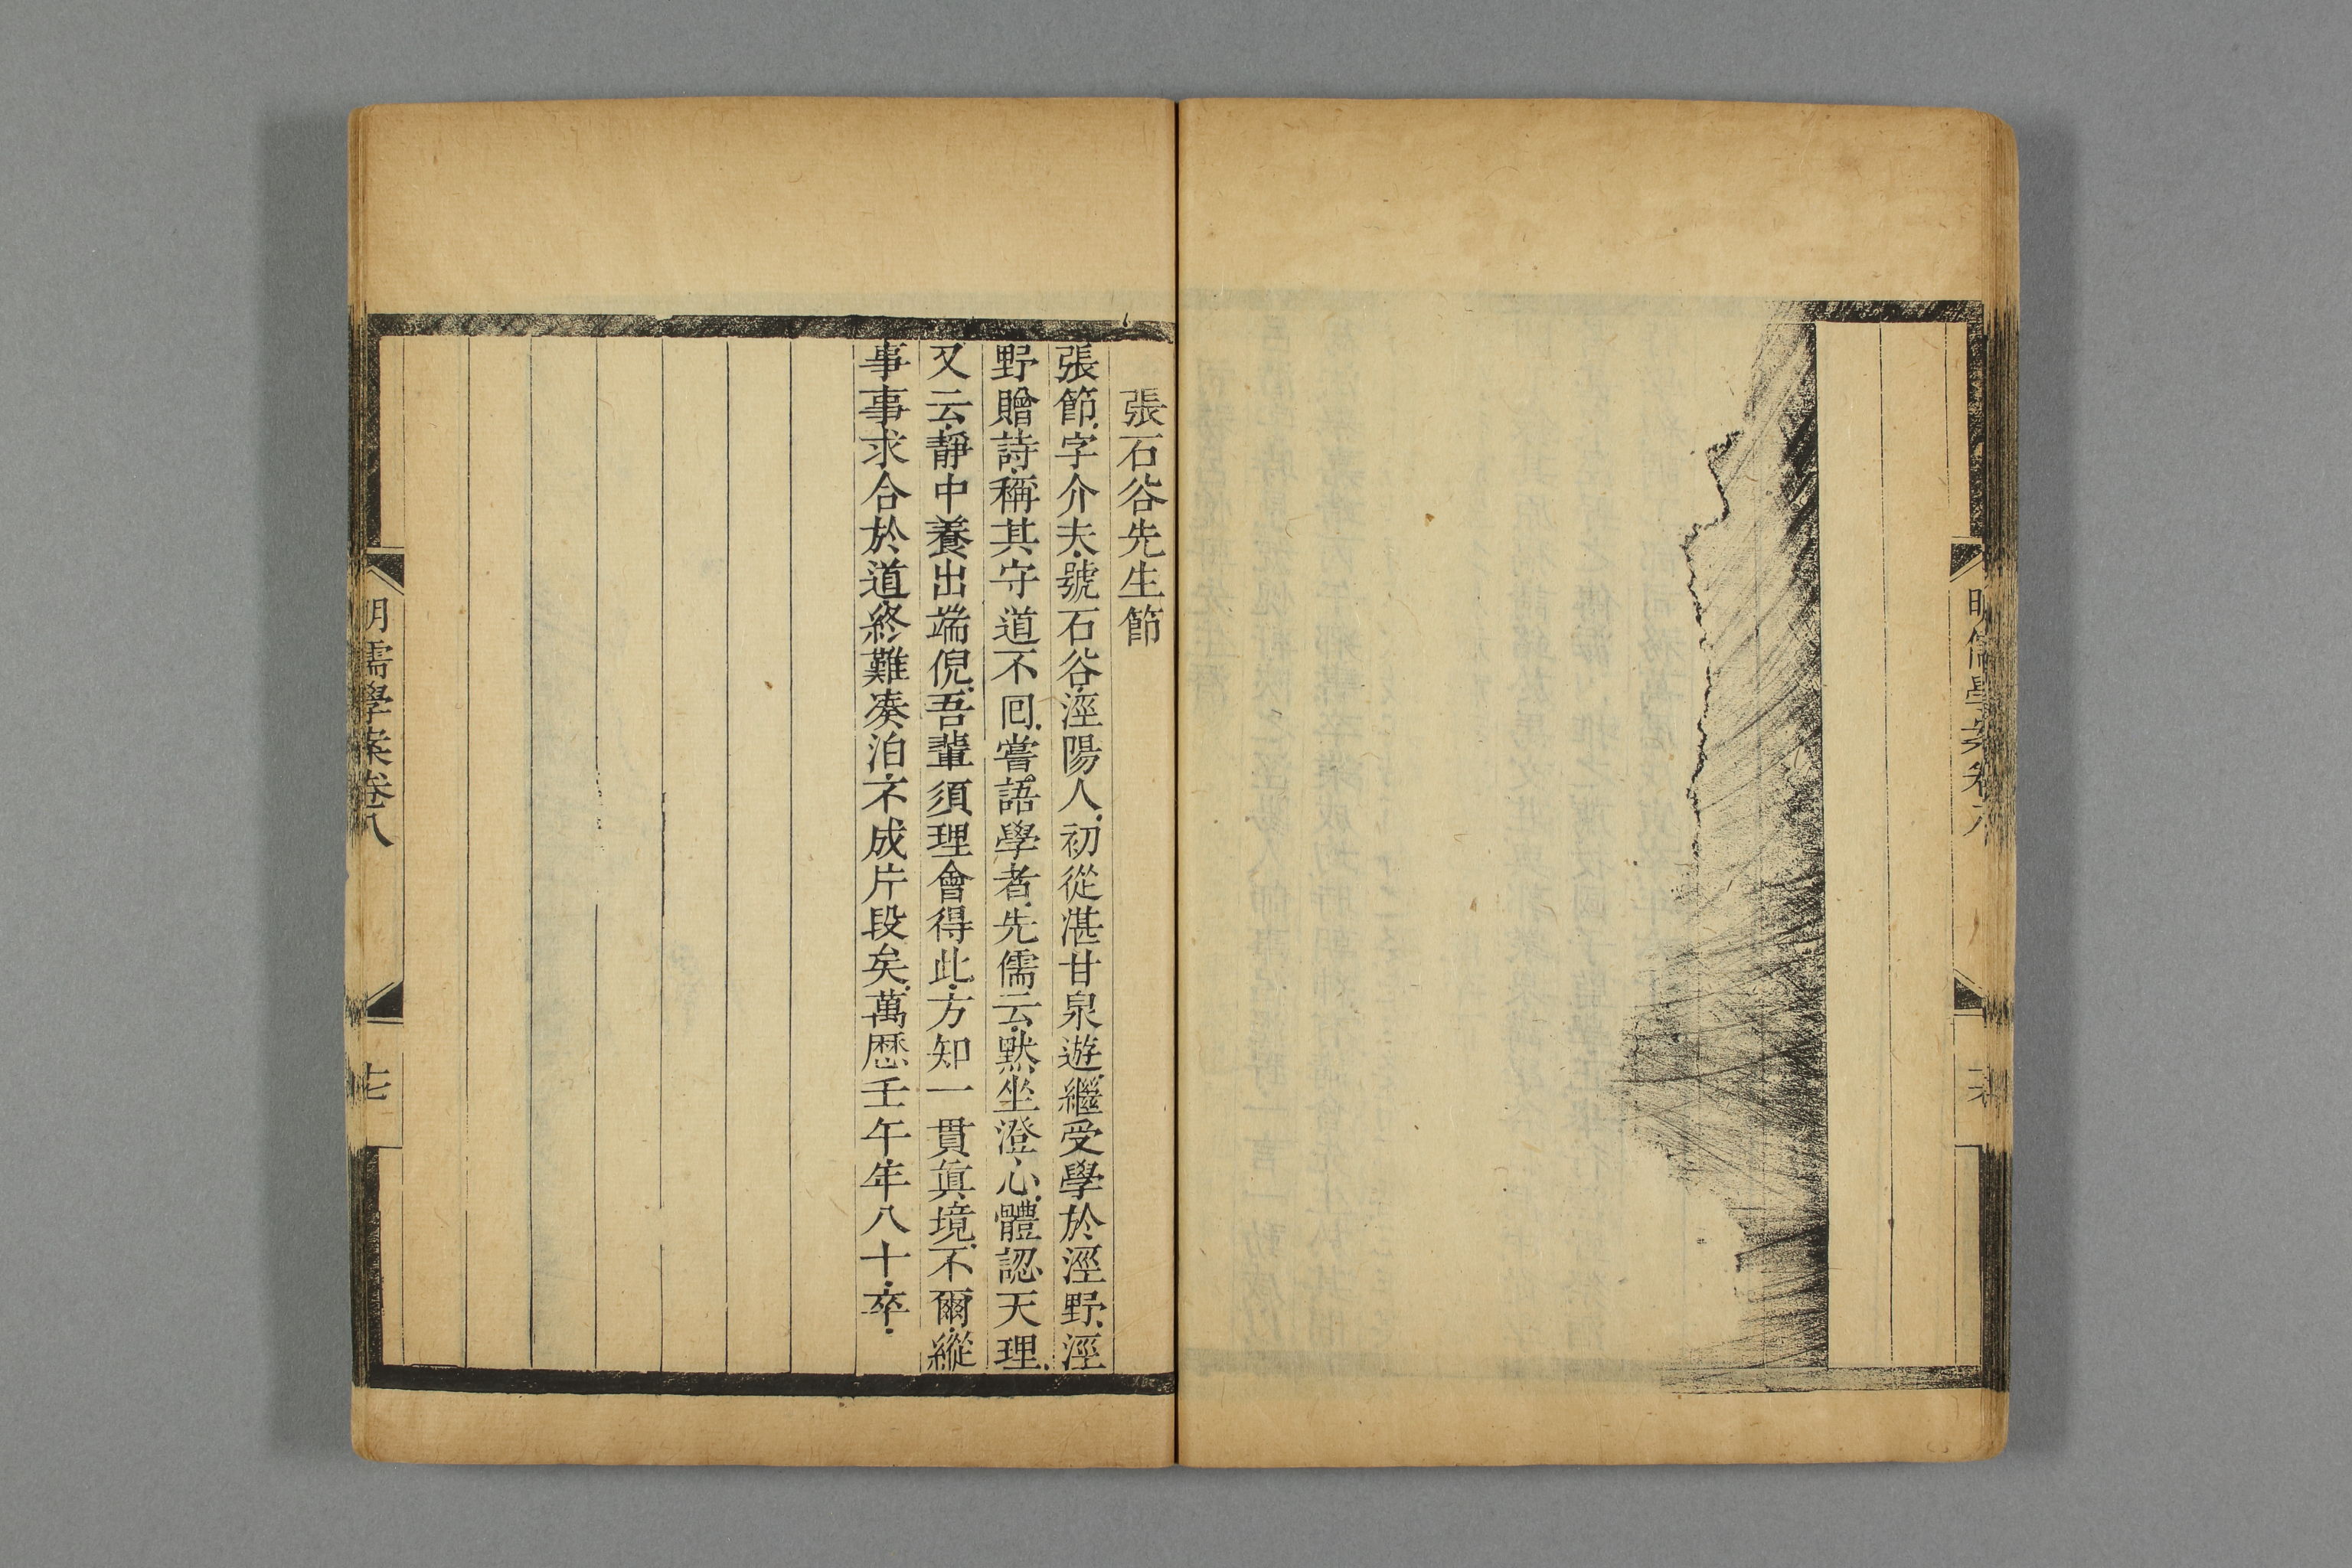 張石谷先生節
張節字介夫號石谷涇陽人初從湛甘泉遊繼受學於涇野涇
野贈詩稱其守道不回嘗語學者先儒云默坐澄心體認天理
又云靜中養出端倪吾輩須理會得此方知一貫眞境不爾縱
事事求合於道終難凑泊不成片段矣萬歷壬午年八十卒
明儒學案卷八